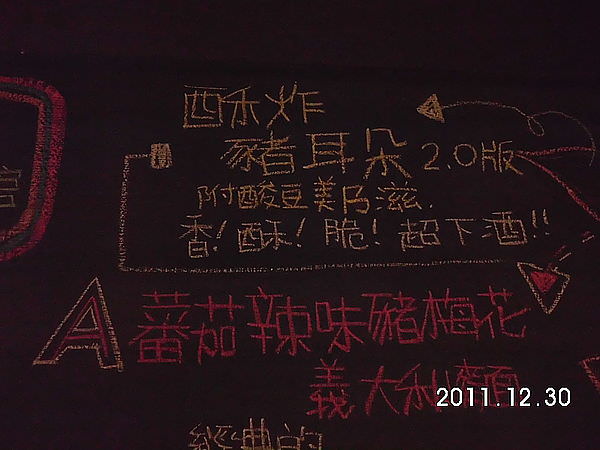 酥炸
豬耳朵 2.0版
附酸豆美乃滋.
香!酥!脆!超下酒!!
A 蕃茄辣味豬梅花
義大利麵
經典的
2011.12.30